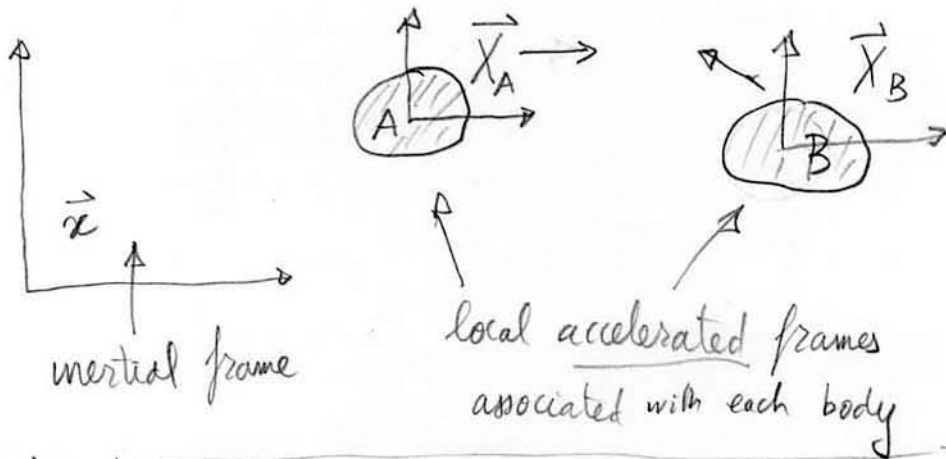 A
X_A
B
X_B
x
inertial frame
local accelerated frames
associated with each body